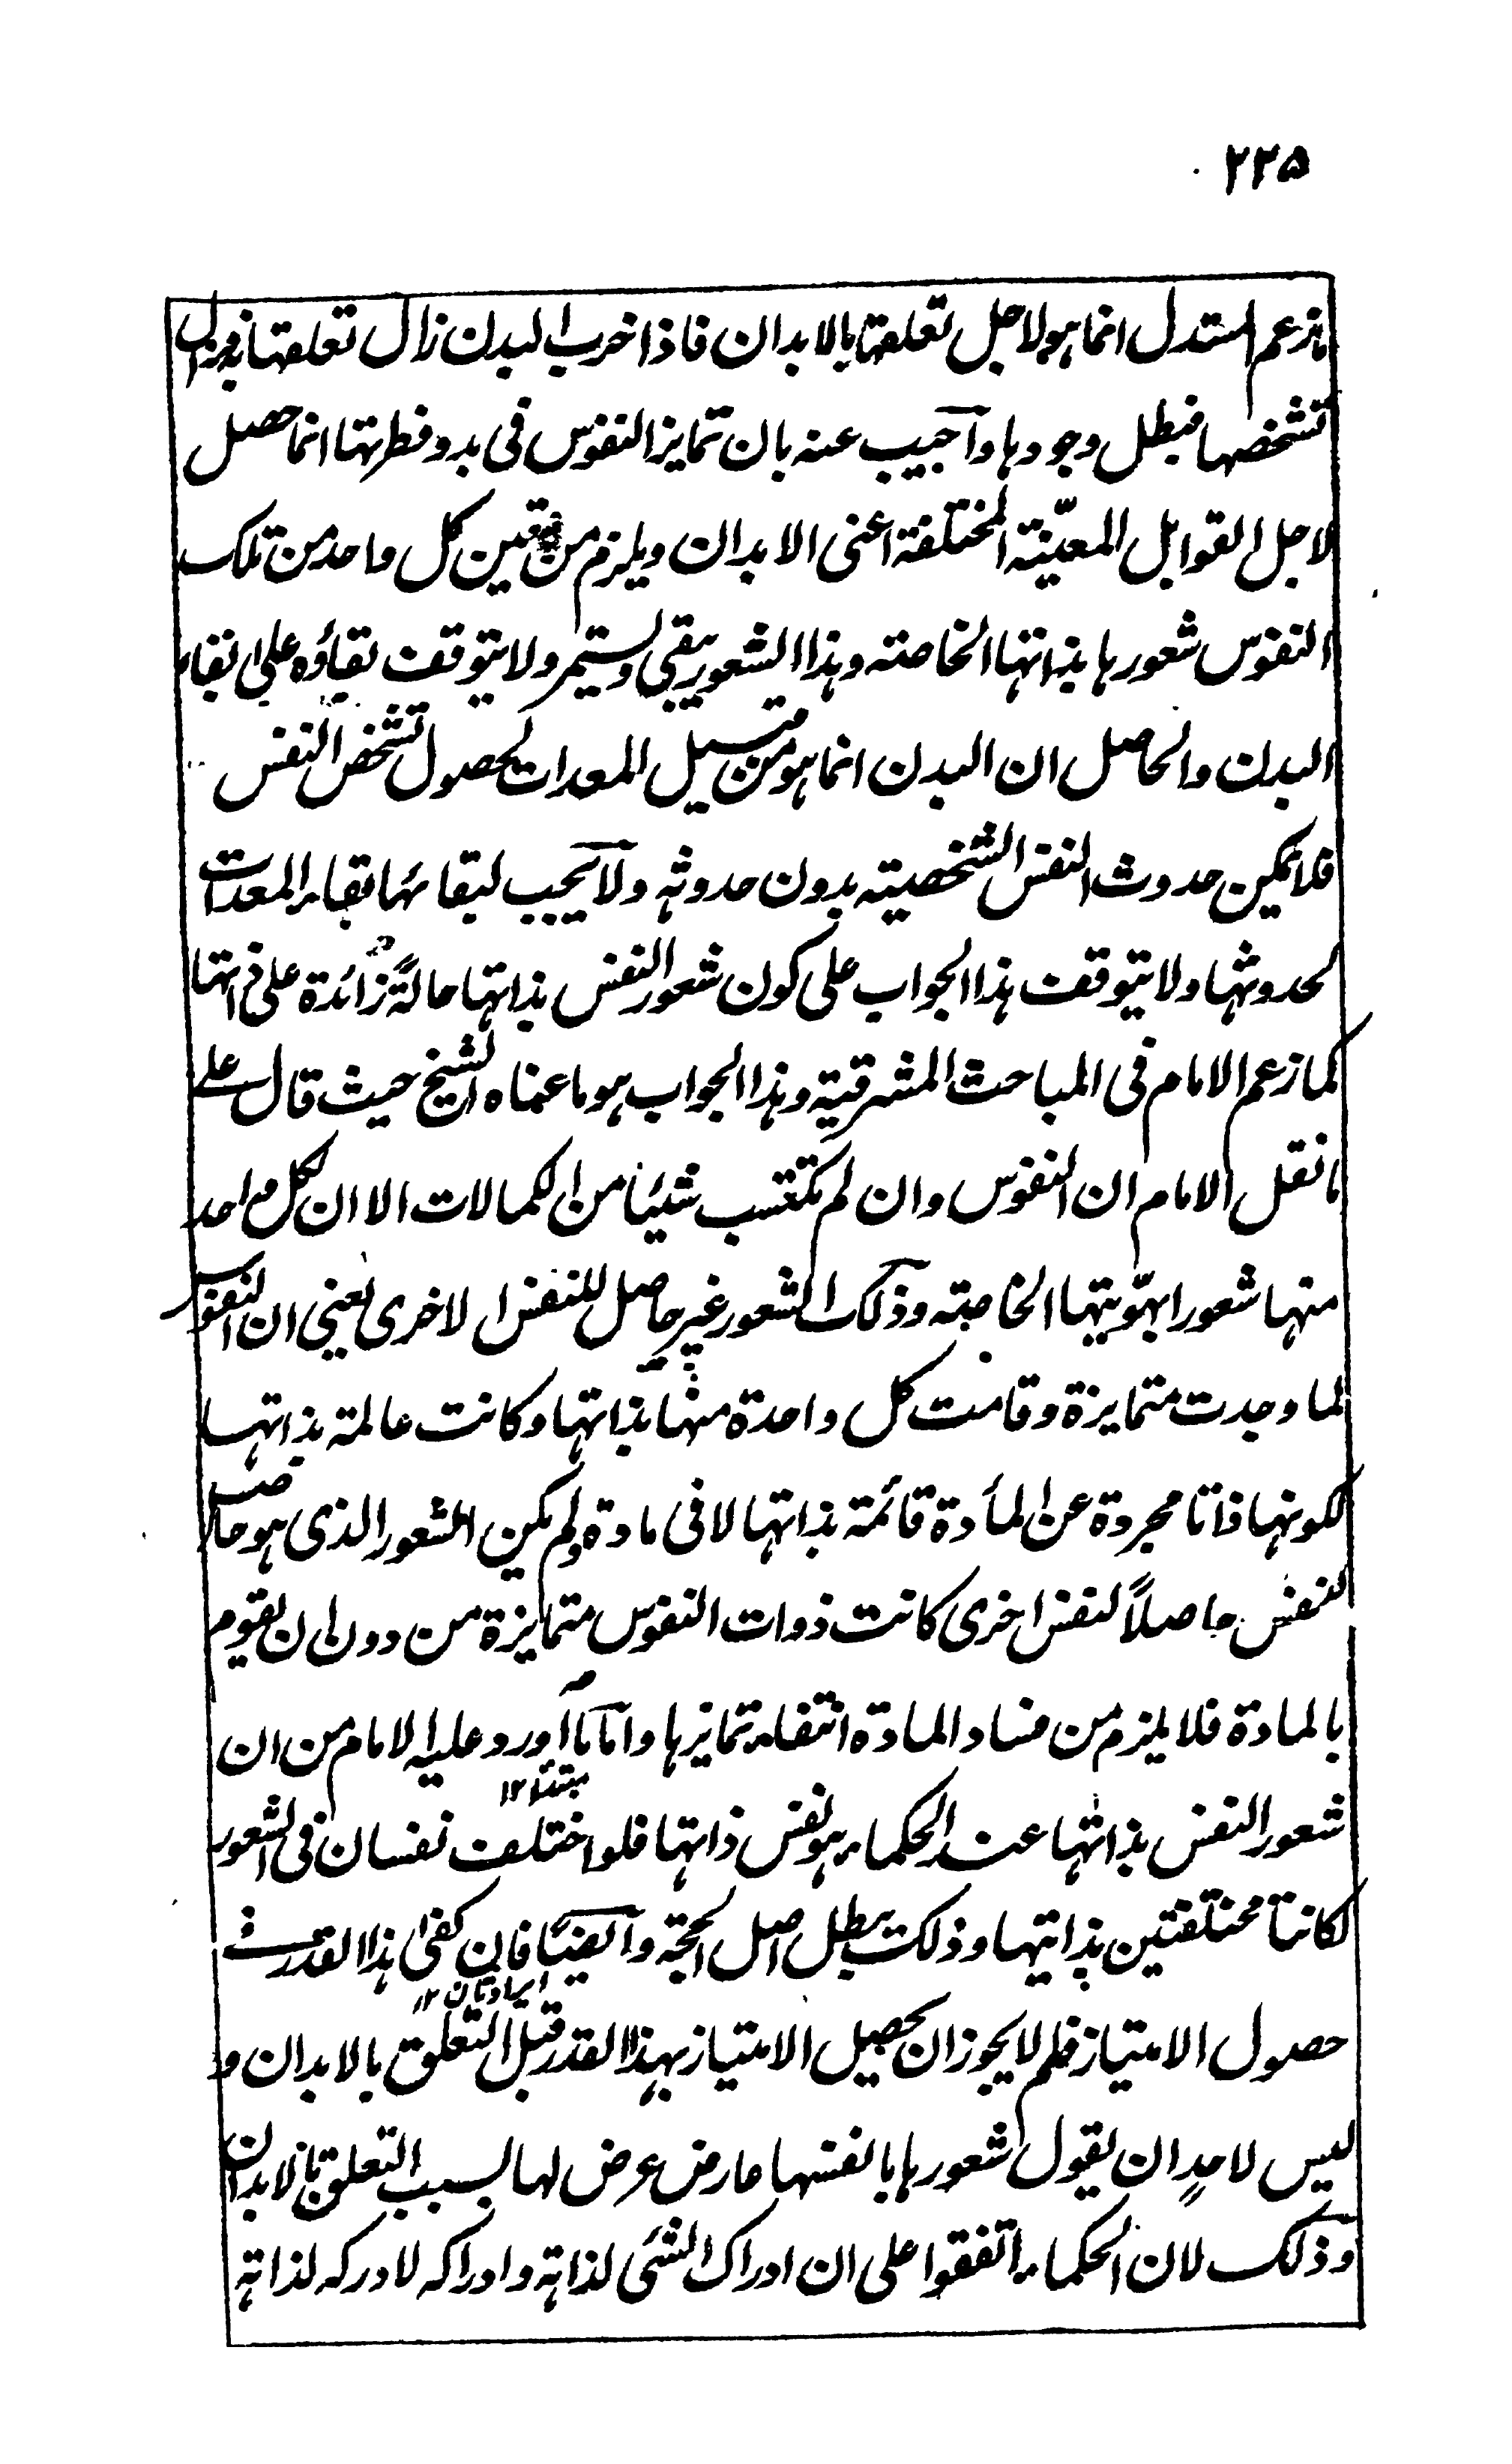 ٢٢٥
ما زعم المستدل انما هو لاجل تعلقها بالابدان فاذا خرب البدن زال تعلقها به فزال
تشخصها فبطل وجودها وآجيب عنه بان تمايز النفوس فى بدو فطرتها انما حصل
لاجل القوابل المعيّنة المختلفة اعنى الابدان ويلزم من تعين كل واحد من تلك
النفوس شعورها بذاتها الخاصة وهذا الشعور يبقى ويستمر ولا يتوقف بقاؤه على بقاء
البدن والحاصل ان البدن انما هو من قبيل المعدات لحصول تشخص النفس
فلا يمكن حدوث النفس الشخصية بدون حدوثه ولا يجب لبقائها بقاء المعدات
لحدوثها ولا يتوقف هذا الجواب على كون شعور النفس بذاتها حالةً زائدة على ذاتها
كما زعم الامام فى المباحث المشرقية وهذا الجواب هو ما عناه الشيخ حيث قال على
ما نقل الامام ان النفوس وان لم تكتسب شيئا من الكمالات الا ان لكل واحد
منها شعورا بهوّيتها الخاصة وذلك الشعور غير حاصل للنفس الاخرى يعنى ان النفوس
لما وجدت متمايزة وقامت كل واحدة منها بذاتها وكانت عالمة بذاتها
لكونها ذاتا مجردة عن المادة قائمة بذاتها لا فى مادة ولم يكن الشعور الذى هو حاصل
لنفس حاصلاً لنفس اخرى كانت ذوات النفوس متمايزة من دون ان يقوم
بالمادة فلا يلزم من فساد المادة انتفاء تمايزها واما ما اورد عليه الامام من ان
مبتدأ ١٢
شعور النفس بذاتها عند الحكماء هو نفس ذاتها فلو اختلف نفسان فى الشعور
لكانتا مختلفتين بذاتيهما وذلك يبطل اصل الحجة وآيضًا فان كفى هذا القدر فى
ايراد ثان ١٢
حصول الامتياز فلم لا يجوز ان يحصل الامتياز بهذا القدر قبل التعلق بالابدان و
ليس لاحدٍ ان يقول شعورها بانفسها عارض عرض لها بسبب التعلق بالابدان
وذلك لان الحكماء اتفقوا على ان ادراك الشئى لذاته وادراكه لادركه لذاته